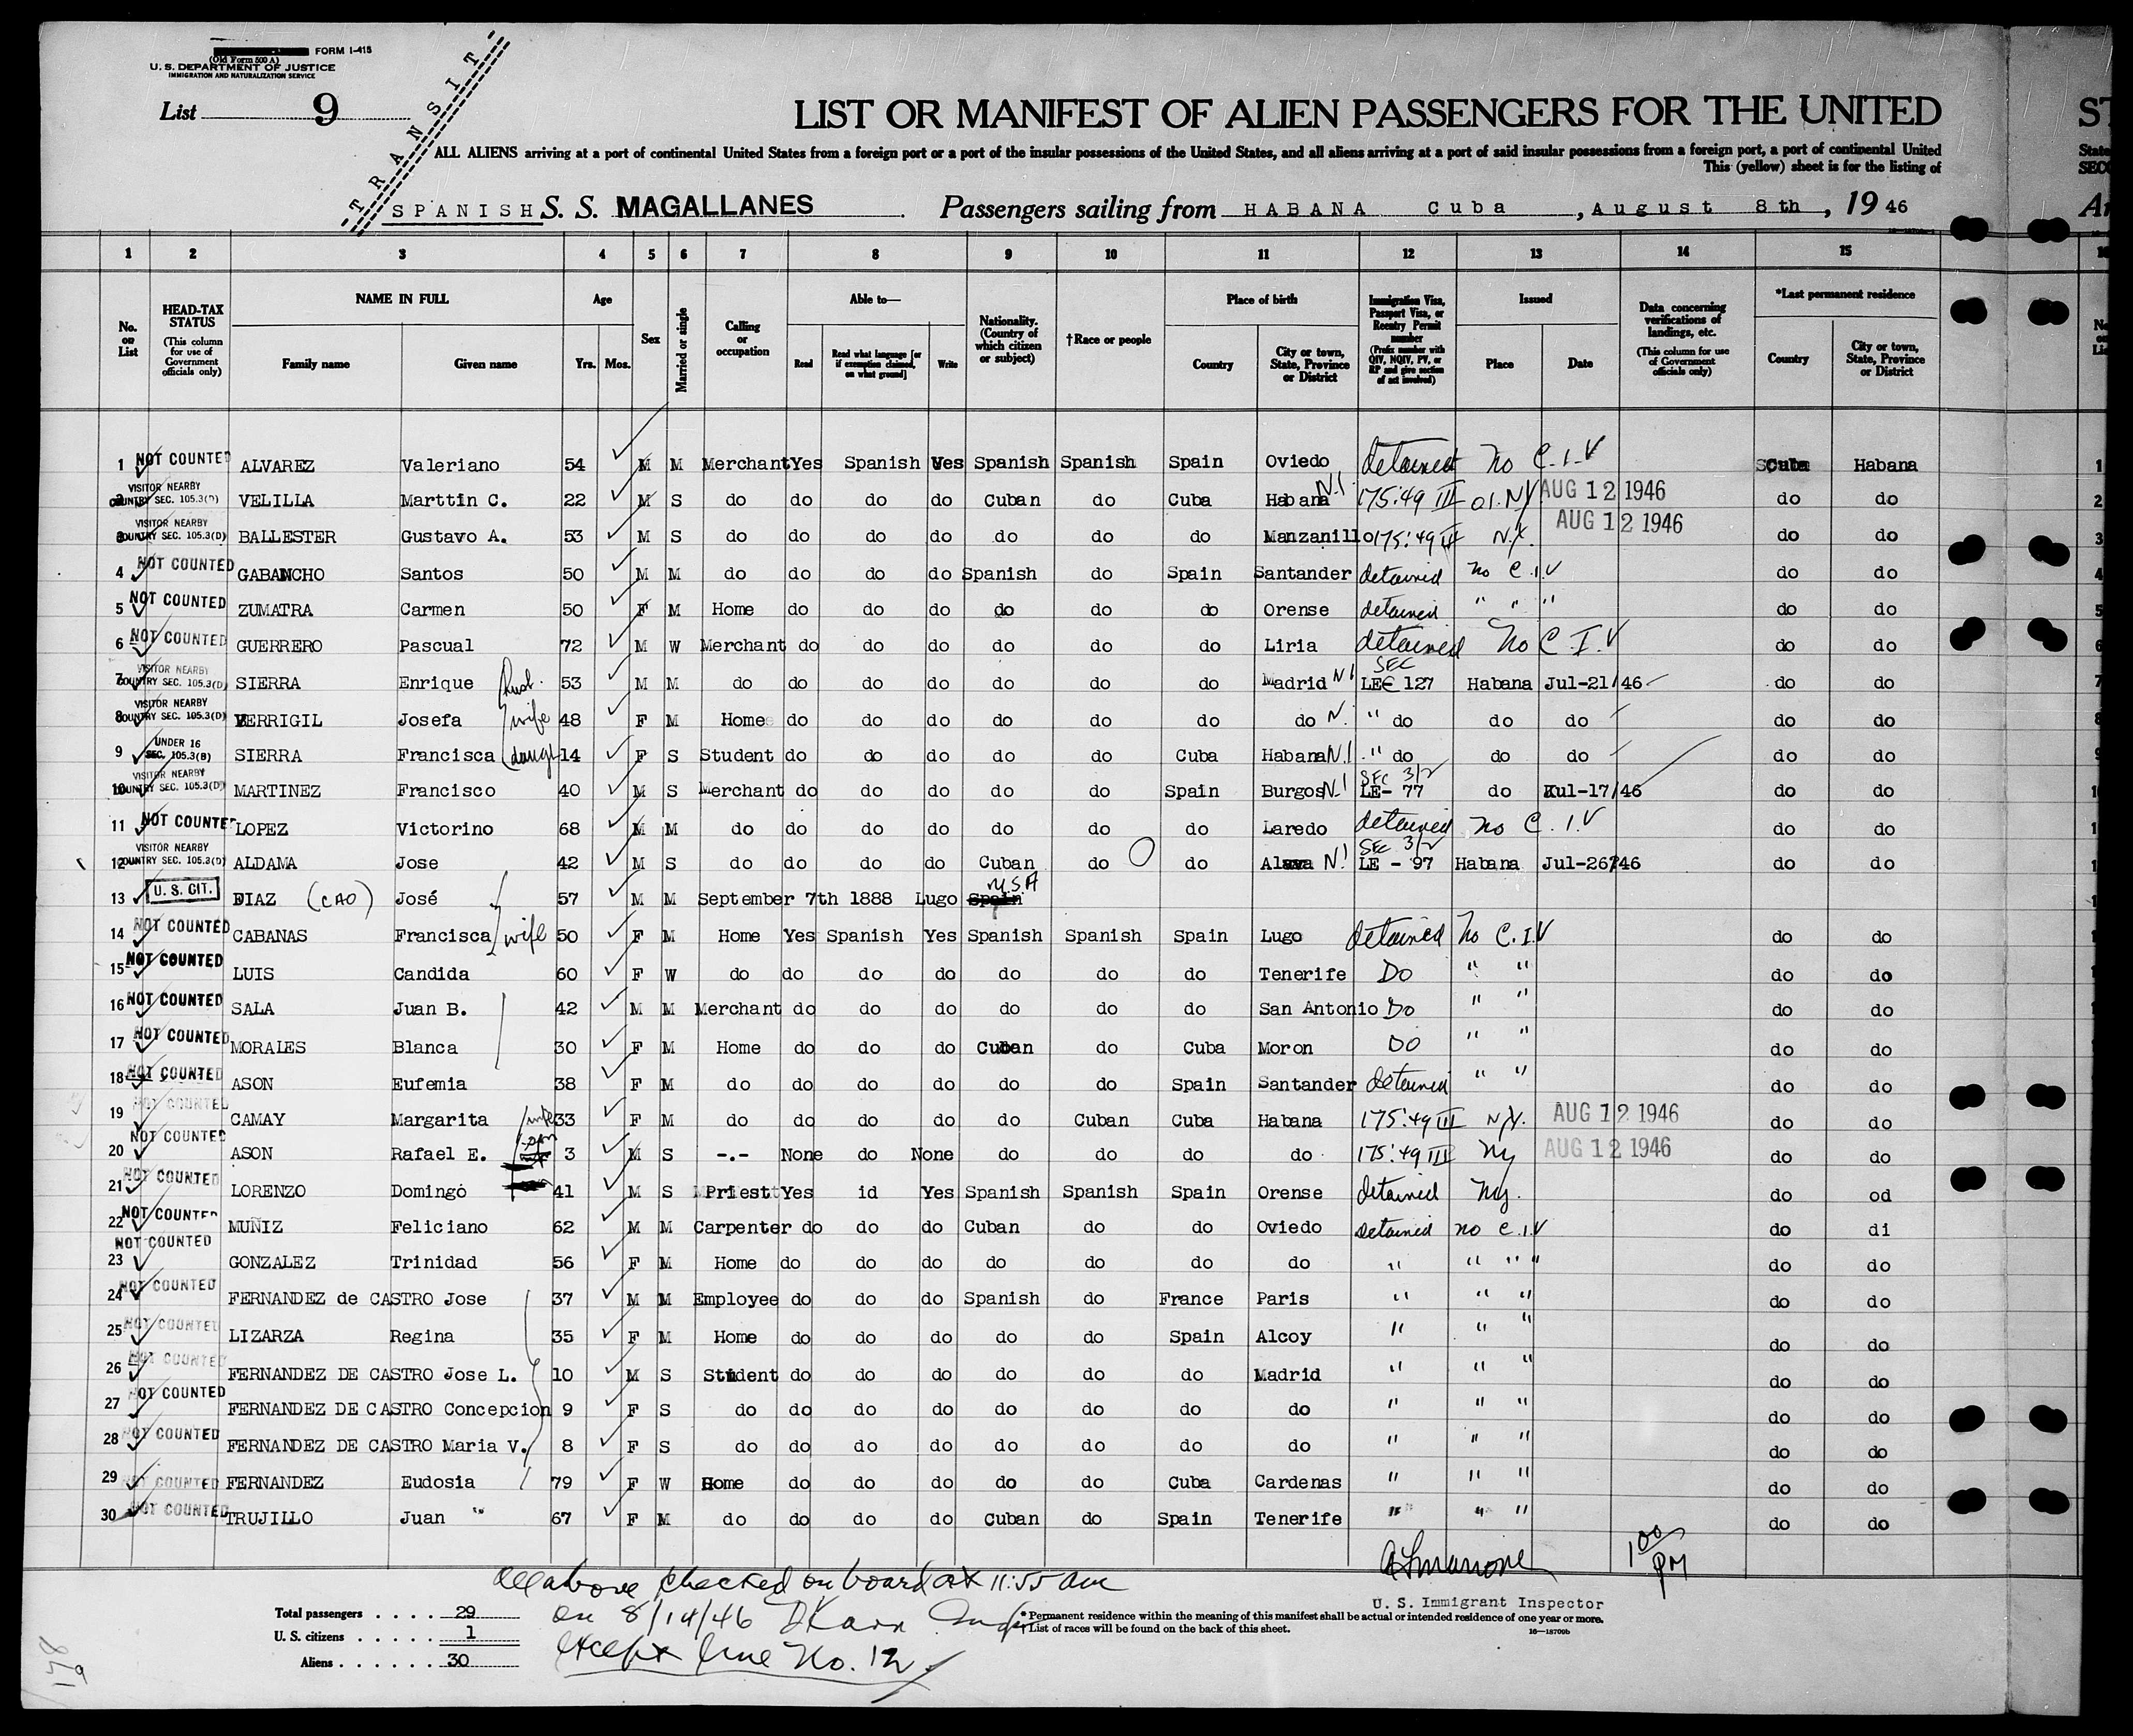 FORM I-415
(Old Form 500 A)
U. S. DEPARTMENT OF JUSTICE
IMMIGRATION AND NATURALIZATION SERVICE
TRANSIT
List 9
LIST OR MANIFEST OF ALIEN PASSENGERS FOR THE UNITED
ST
ALL ALIENS arriving at a port of continental United States from a foreign port or a port of the insular possessions of the United States, and all aliens arriving at a port of said insular possessions from a foreign port, a port of continental United
State
This (yellow) sheet is for the listing of
SPANISH S. S. MAGALLANES Passengers sailing from HABANA Cuba, August 8th, 19 46
1 2 3 4 5 6 7 8 9 10 11 12 13 14 15
No. on List
HEAD-TAX STATUS (This column for use of Government officials only)
NAME IN FULL Family name Given name
Age Yrs. Mos.
Sex
Married or single
Calling or occupation
Able to— Read Read what language [or if exemption claimed, on what ground] Write
Nationality. (Country of which citizen or subject)
†Race or people
Place of birth Country City or town, State, Province or District
Immigration Visa, Passport Visa, or Reentry Permit number (Prefix number with QIV, NQIV, PV, or RP and give section of act involved)
Issued Place Date
Data concerning verifications of landings, etc. (This column for use of Government officials only)
*Last permanent residence Country City or town, State, Province or District
1 NOT COUNTED ALVAREZ Valeriano 54 M M Merchant Yes Spanish Yes Spanish Spanish Spain Oviedo detained no C.I.V Cuba Habana 1
2 VISITOR NEARBY COUNTRY SEC. 105.3(D) VELILLA Marttin C. 22 M S do do do do Cuban do Cuba Habana N.I 175:49 III AUG 12 1946 do do 2
3 VISITOR NEARBY COUNTRY SEC. 105.3(D) BALLESTER Gustavo A. 53 M S do do do do do do do Manzanillo 175:49 III N.Y. AUG 12 1946 do do 3
4 NOT COUNTED GABANCHO Santos 50 M M do do do do Spanish do Spain Santander detained no C.I.V do do 4
5 NOT COUNTED ZUMATRA Carmen 50 F M Home do do do do do do Orense detained " " " do do 5
6 NOT COUNTED GUERRERO Pascual 72 M W Merchant do do do do do do Liria detained No C.I.V do do 6
7 VISITOR NEARBY COUNTRY SEC. 105.3(D) SIERRA Enrique husb. 53 M M do do do do do do do Madrid N I SEC LEE 127 Habana Jul-21/46 do do 7
8 VISITOR NEARBY COUNTRY SEC. 105.3(D) BERRIGIL Josefa wife 48 F M Home do do do do do do do N. " do do do do do 8
9 UNDER 16 SEC. 105.3(B) SIERRA Francisca daugt 14 F S Student do do do do do Cuba Habana N.I " do do do do do 9
10 VISITOR NEARBY COUNTRY SEC. 105.3(D) MARTINEZ Francisco 40 M S Merchant do do do do do Spain Burgos N.I SEC 3/2 LE- 77 do Kul-17/46 do do
11 NOT COUNTED LOPEZ Victorino 68 M M do do do do do do do Laredo detained no C.I.V do do
12 VISITOR NEARBY COUNTRY SEC. 105.3(D) ALDAMA Jose 42 M S do do do do Cuban do do Alava N.I SEC 3/2 LE - 97 Habana Jul-26/46 do do
13 U. S. CIT. DIAZ (CAO) José 57 M M September 7th 1888 Lugo Spain U.S.A
14 NOT COUNTED CABANAS Francisca wife 50 F M Home Yes Spanish Yes Spanish Spanish Spain Lugo detained No C.I.V do do
15 NOT COUNTED LUIS Candida 60 F W do do do do do do do Tenerife Do " " do do
16 NOT COUNTED SALA Juan B. 42 M M Merchant do do do do do do San Antonio Do " " do do
17 NOT COUNTED MORALES Blanca 30 F M Home do do do Cuban do Cuba Moron Do " " do do
18 NOT COUNTED ASON Eufemia 38 F M do do do do do do Spain Santander detained " " do do
19 NOT COUNTED CAMAY Margarita wife 33 F M do do do do do Cuban Cuba Habana 175:49 III N.Y. AUG 12 1946 do do
20 NOT COUNTED ASON Rafael E. son 3 M S -.- None do None do do do do 175:49 III Ny AUG 12 1946 do do
21 NOT COUNTED LORENZO Domingo 41 M S Priest Yes id Yes Spanish Spanish Spain Orense detained Ny. do od
22 NOT COUNTED MUÑIZ Feliciano 62 M M Carpenter do do do Cuban do do Oviedo Detained no C.I.V do di
23 NOT COUNTED GONZALEZ Trinidad 56 F M Home do do do do do do do " " " " do do
24 NOT COUNTED FERNANDEZ de CASTRO Jose 37 M M Employee do do do Spanish do France Paris " " " do do
25 NOT COUNTED LIZARZA Regina 35 F M Home do do do do do Spain Alcoy " " " do do
26 NOT COUNTED FERNANDEZ DE CASTRO Jose L. 10 M S Student do do do do do do Madrid " " " do do
27 NOT COUNTED FERNANDEZ DE CASTRO Concepcion 9 F S do do do do do do do do " " " do do
28 NOT COUNTED FERNANDEZ DE CASTRO Maria V. 8 F S do do do do do do do do " " " do do
29 NOT COUNTED FERNANDEZ Eudosia 79 F W Home do do do do do Cuba Cardenas " " " do do
30 NOT COUNTED TRUJILLO Juan 67 F M do do do do Cuban do Spain Tenerife " " " do do
1 00 PM
All above checked on board at 11:55 am
U. S. Immigrant Inspector
Total passengers . . . . 29
on 8/14/46
* Permanent residence within the meaning of this manifest shall be actual or intended residence of one year or more.
U. S. citizens . . . . . 1
† List of races will be found on the back of this sheet.
16—18709b
Aliens . . . . . . 30
except line No. 12